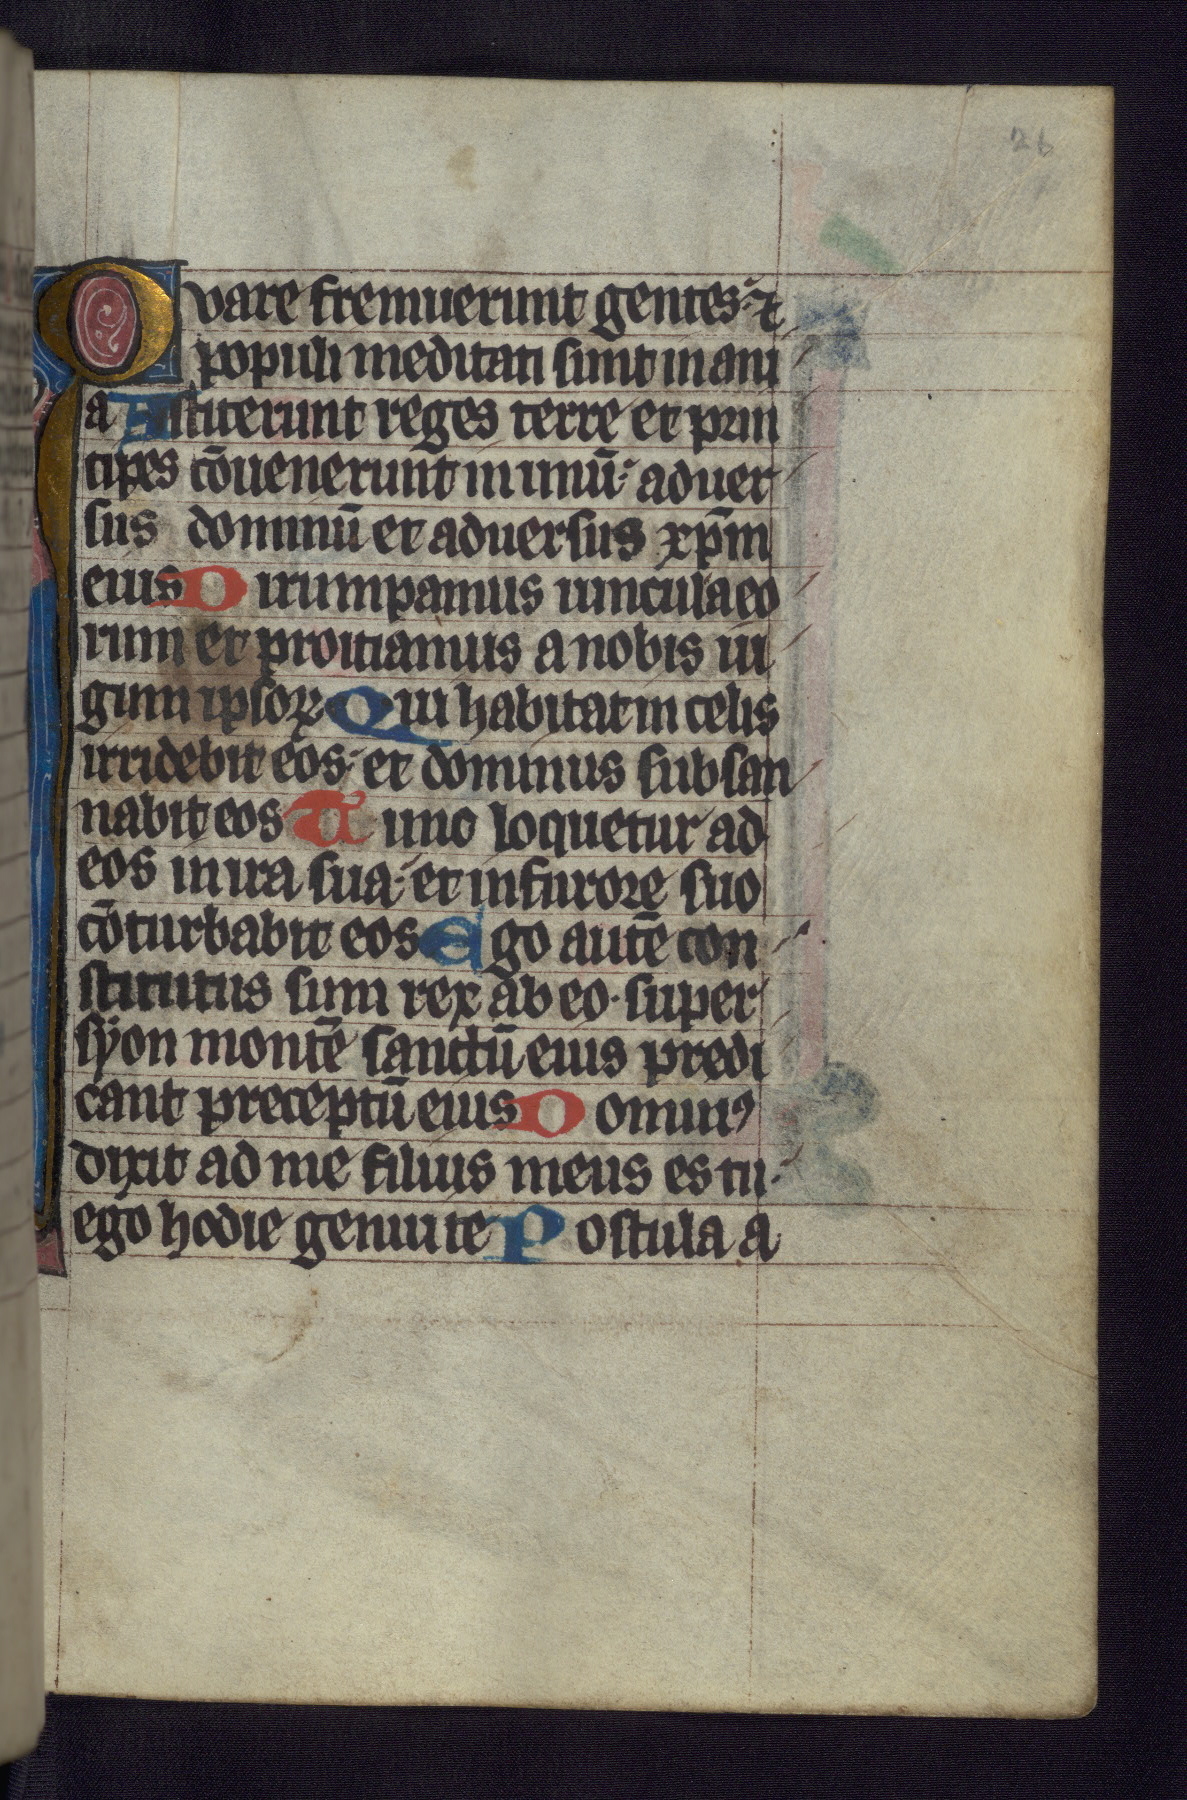 26
Quare fremuerunt gentes: ⁊
populi meditati sunt inani
a Astiterunt reges terre et prin
cipes cōuenerunt in unū: aduer
sus dominū et aduersus xp̄m
eius Dirumpamus uincula eo
rum et proiciamus a nobis iu
gum ipsoꝝ Qui habitat in celis
irridebit eos: et dominus subsan
nabit eos Tunc loquetur ad
eos in ira sua: et in furore suo
cōturbabit eos Ego autē con
stitutus sum rex ab eo· super
syon montē sanctū eius predi
cans preceptū eius Dominꝰ
dixit ad me filius meus es tu·
ego hodie genui te Postula a